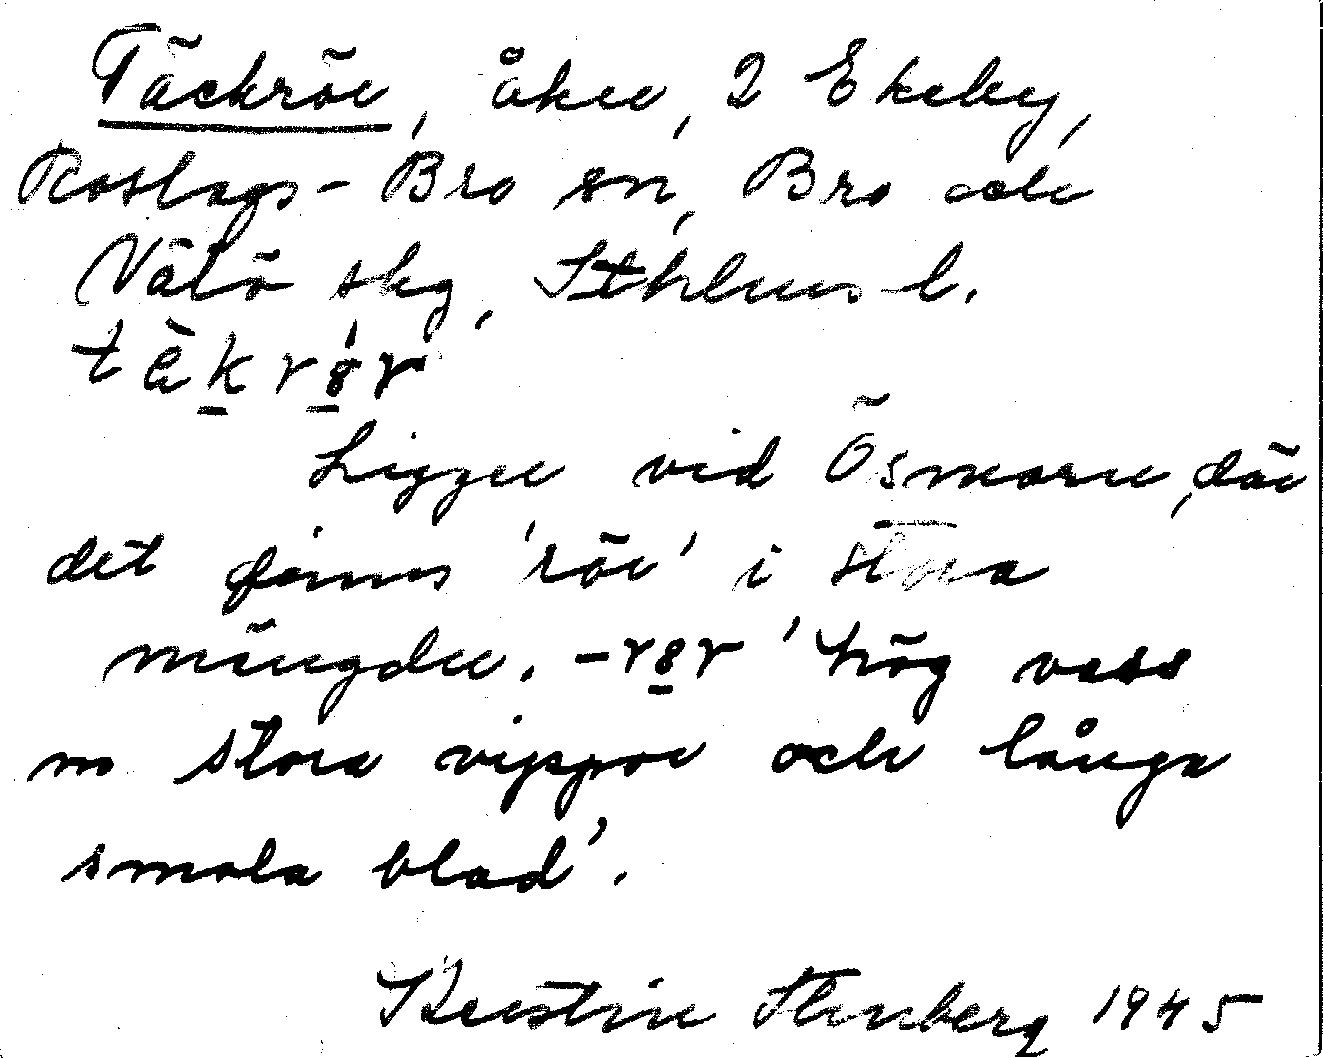 Täckrör, åker, 2 Ekeby,
Roslags-Bro sn, Bro och
Vätö skg, Sthlms l.
tæ̀krór
Ligger vid Ösmaren, där
det finns 'rör' i stora
mängder. -rör 'hög vass
m stora vippor och långa
smala blad'.
Kerstin Stenberg 1945